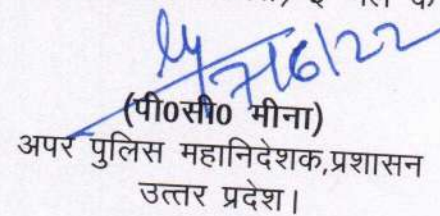 7/6/22
(पी0सी0 मीना)
अपर पुलिस महानिदेशक,प्रशासन
उत्तर प्रदेश।